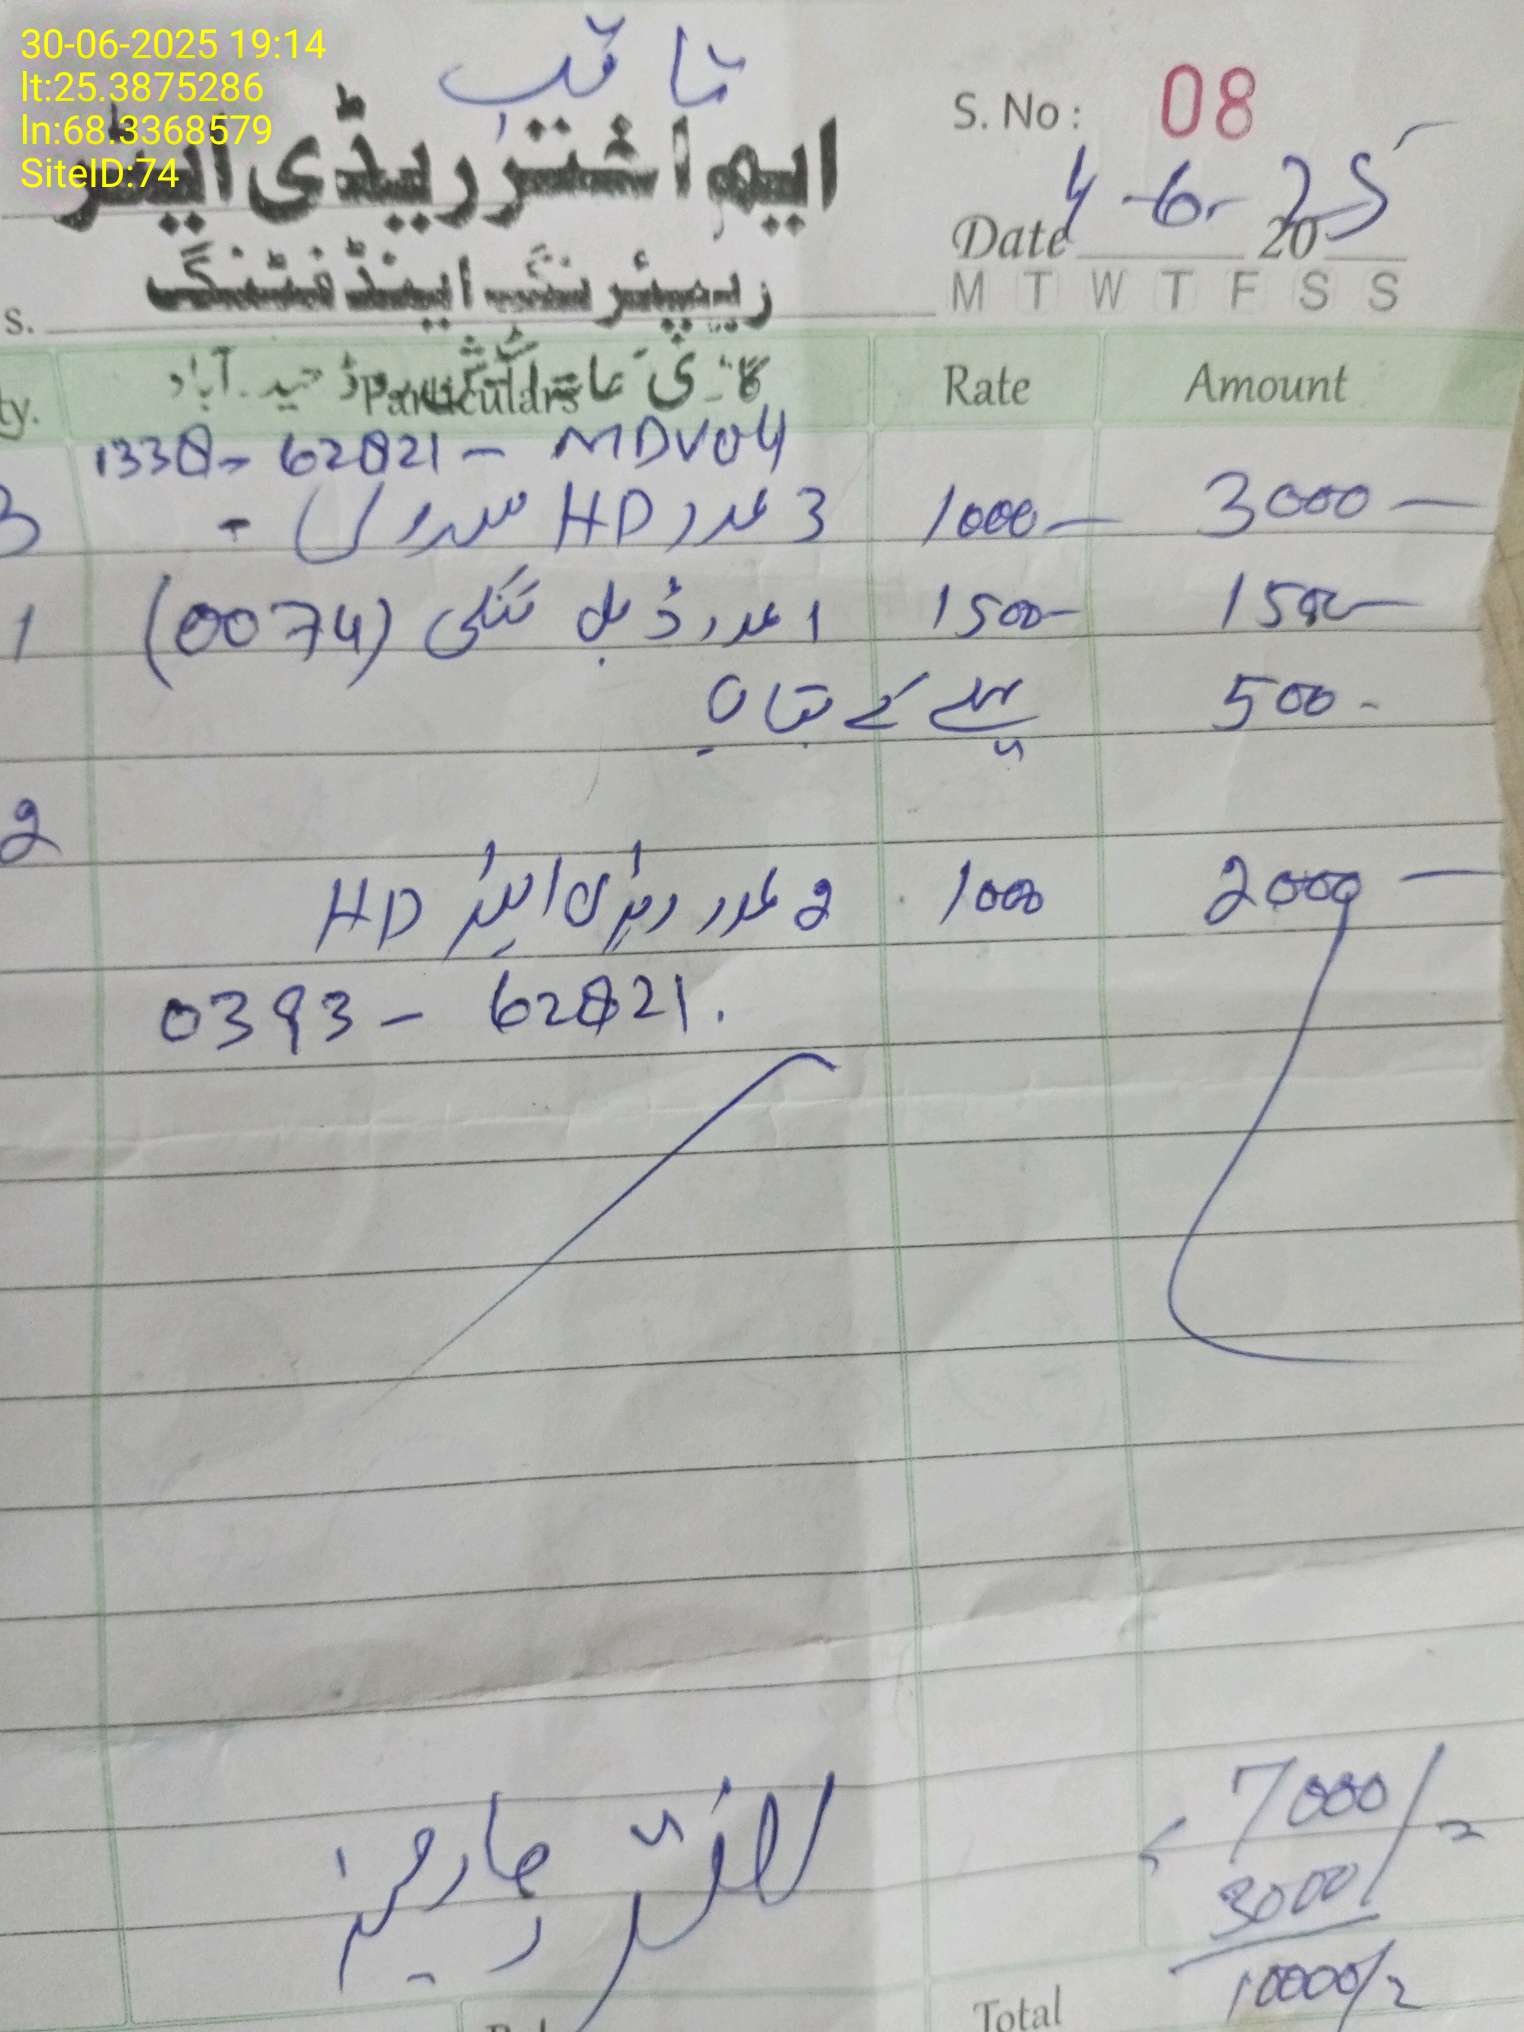 30-06-2025 19:14
lt:25.3875286
ln:68.3368579
SiteID:74
ثاقب
S. No: 08
ریڈی ایٹر
Date 4-6-2025
ریپئرنگ اینڈ فٹنگ
M T W T F S S
s.
ty. Particulars Rate Amount
حیدرآباد
1338-62821-MDV04
3 3 عدد HD 1000 3000
1 1 عدد ڈبل ٹنکی (0074) 1500 1500
پہلے کے بقایا 500
2
2 عدد ریڈی ایٹر HD 1000 2000
0393-62821.
7000/=
لفٹر چارجز 3000
10000/=
Total